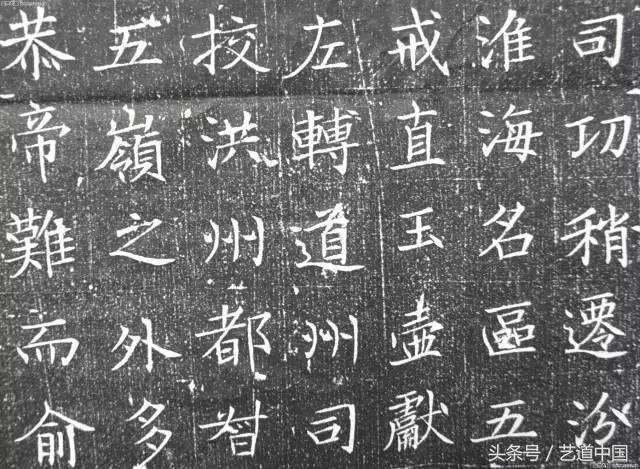 司功稍遷汾
淮海名區五
戒直玉壺獻
左轉道州司
挍洪州都督
五嶺之外多
恭帝難而俞
头条号／艺道中国